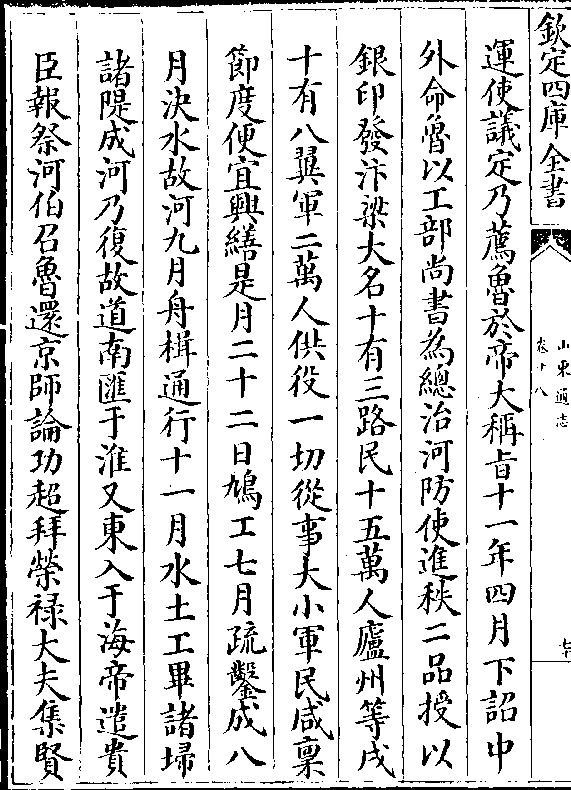 欽定四庫全書
山東通志
卷十八
運使議定乃薦魯於帝大稱旨十一年四月下詔中
外命魯以工部尚書為總治河防使進秩二品授以
銀印發汴梁大名十有三路民十五萬人廬州等戍
十有八翼軍二萬人供役一切從事大小軍民咸稟
節度便宜興繕是月二十二日鳩工七月疏鑿成八
月決水故河九月舟楫通行十一月水土工畢諸埽
諸隄成河乃復故道南匯于淮又東入于海帝遣貴
臣報祭河伯召魯還京師論功超拜榮祿大夫集賢